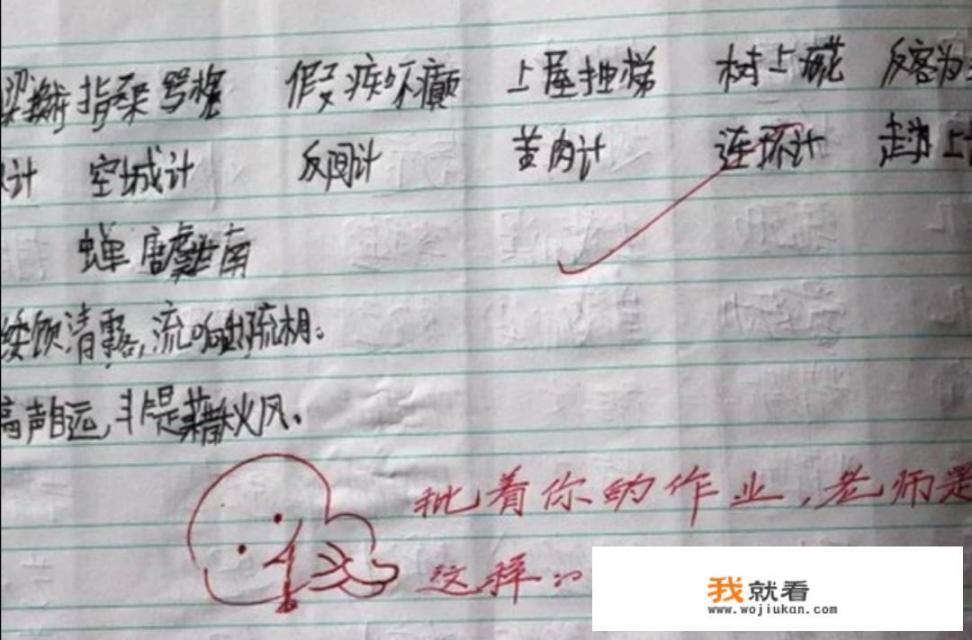 指桑骂槐 假痴不癫 上屋抽梯 树上 反客为
计 空城计 反间计 苦肉计 连环计 走为上
蝉 虞世南
饮清露,流响出疏桐。
高声自远,非是藉秋风。
批着你的作业,老师是
这样。
我就看
www.wojiukan.com